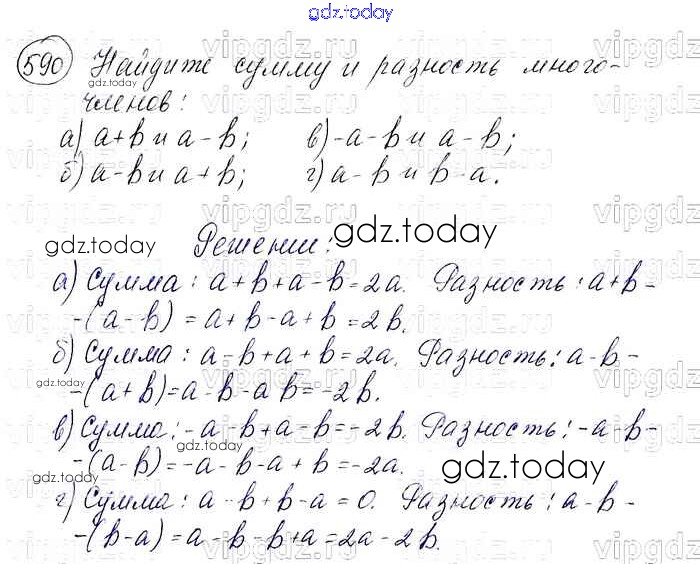 gdz.today
590 Найдите сумму и разность много-
gdz.today
членов:
а) a+b и a-b; в) -a-b и a-b;
б) a-b и a+b; г) a-b и b-a.
gdz.today
Решении: gdz.today
gdz.today
а) Сумма: a+b+a-b=2a. Разность: a+b-
-(a-b) = a+b-a+b=2b.
б) Сумма: a-b+a+b=2a. Разность: a-b-
gdz.today
-(a+b)=a-b-a b=-2b.
в) Сумма: -a-b+a-b=-2b. Разность: -a-b-
-(a-b)=-a-b-a+b=-2a.
gdz.today gdz.today
г) Сумма: a-b+b-a=0. Разность: a-b-
-(b-a)=a-b-b+a=2a-2b.
gdz.today